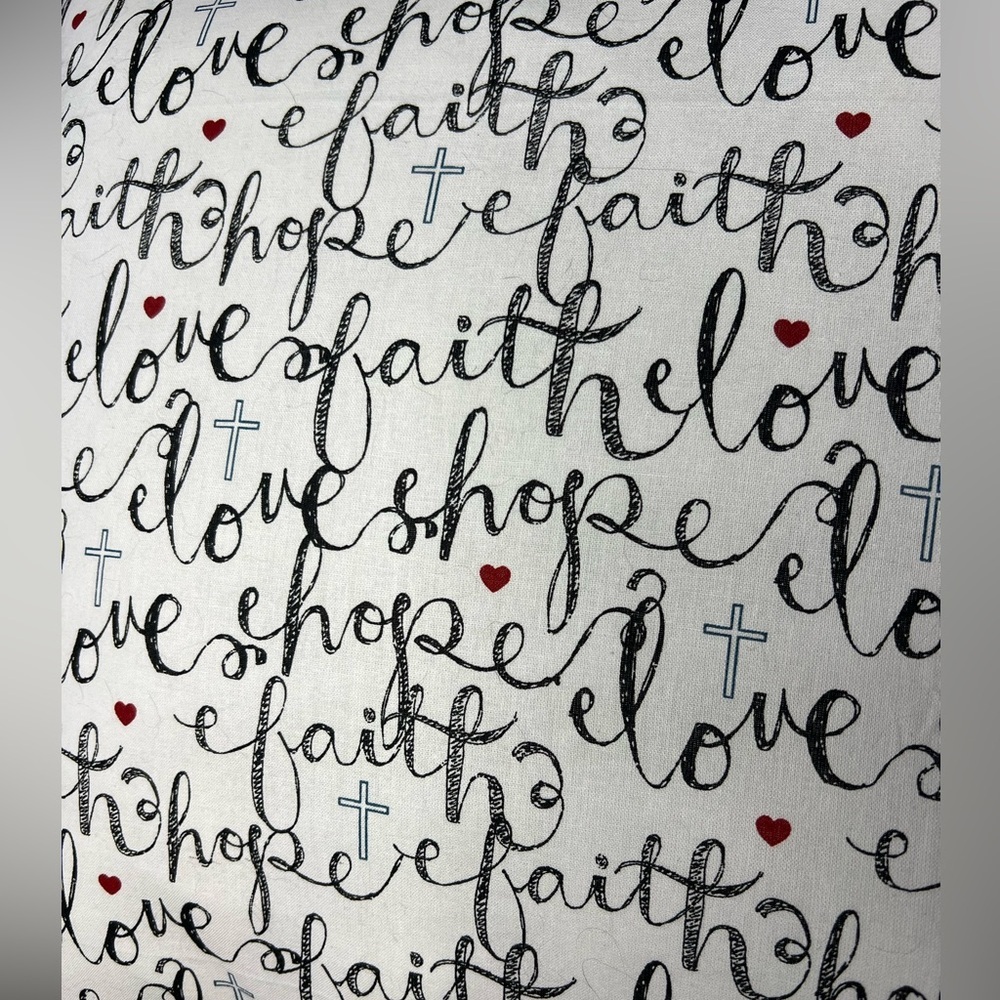 love hope love
faith
faith hope faith h
love faith love
love hope lo
ove hope love
faith
th hope faith
love faith h